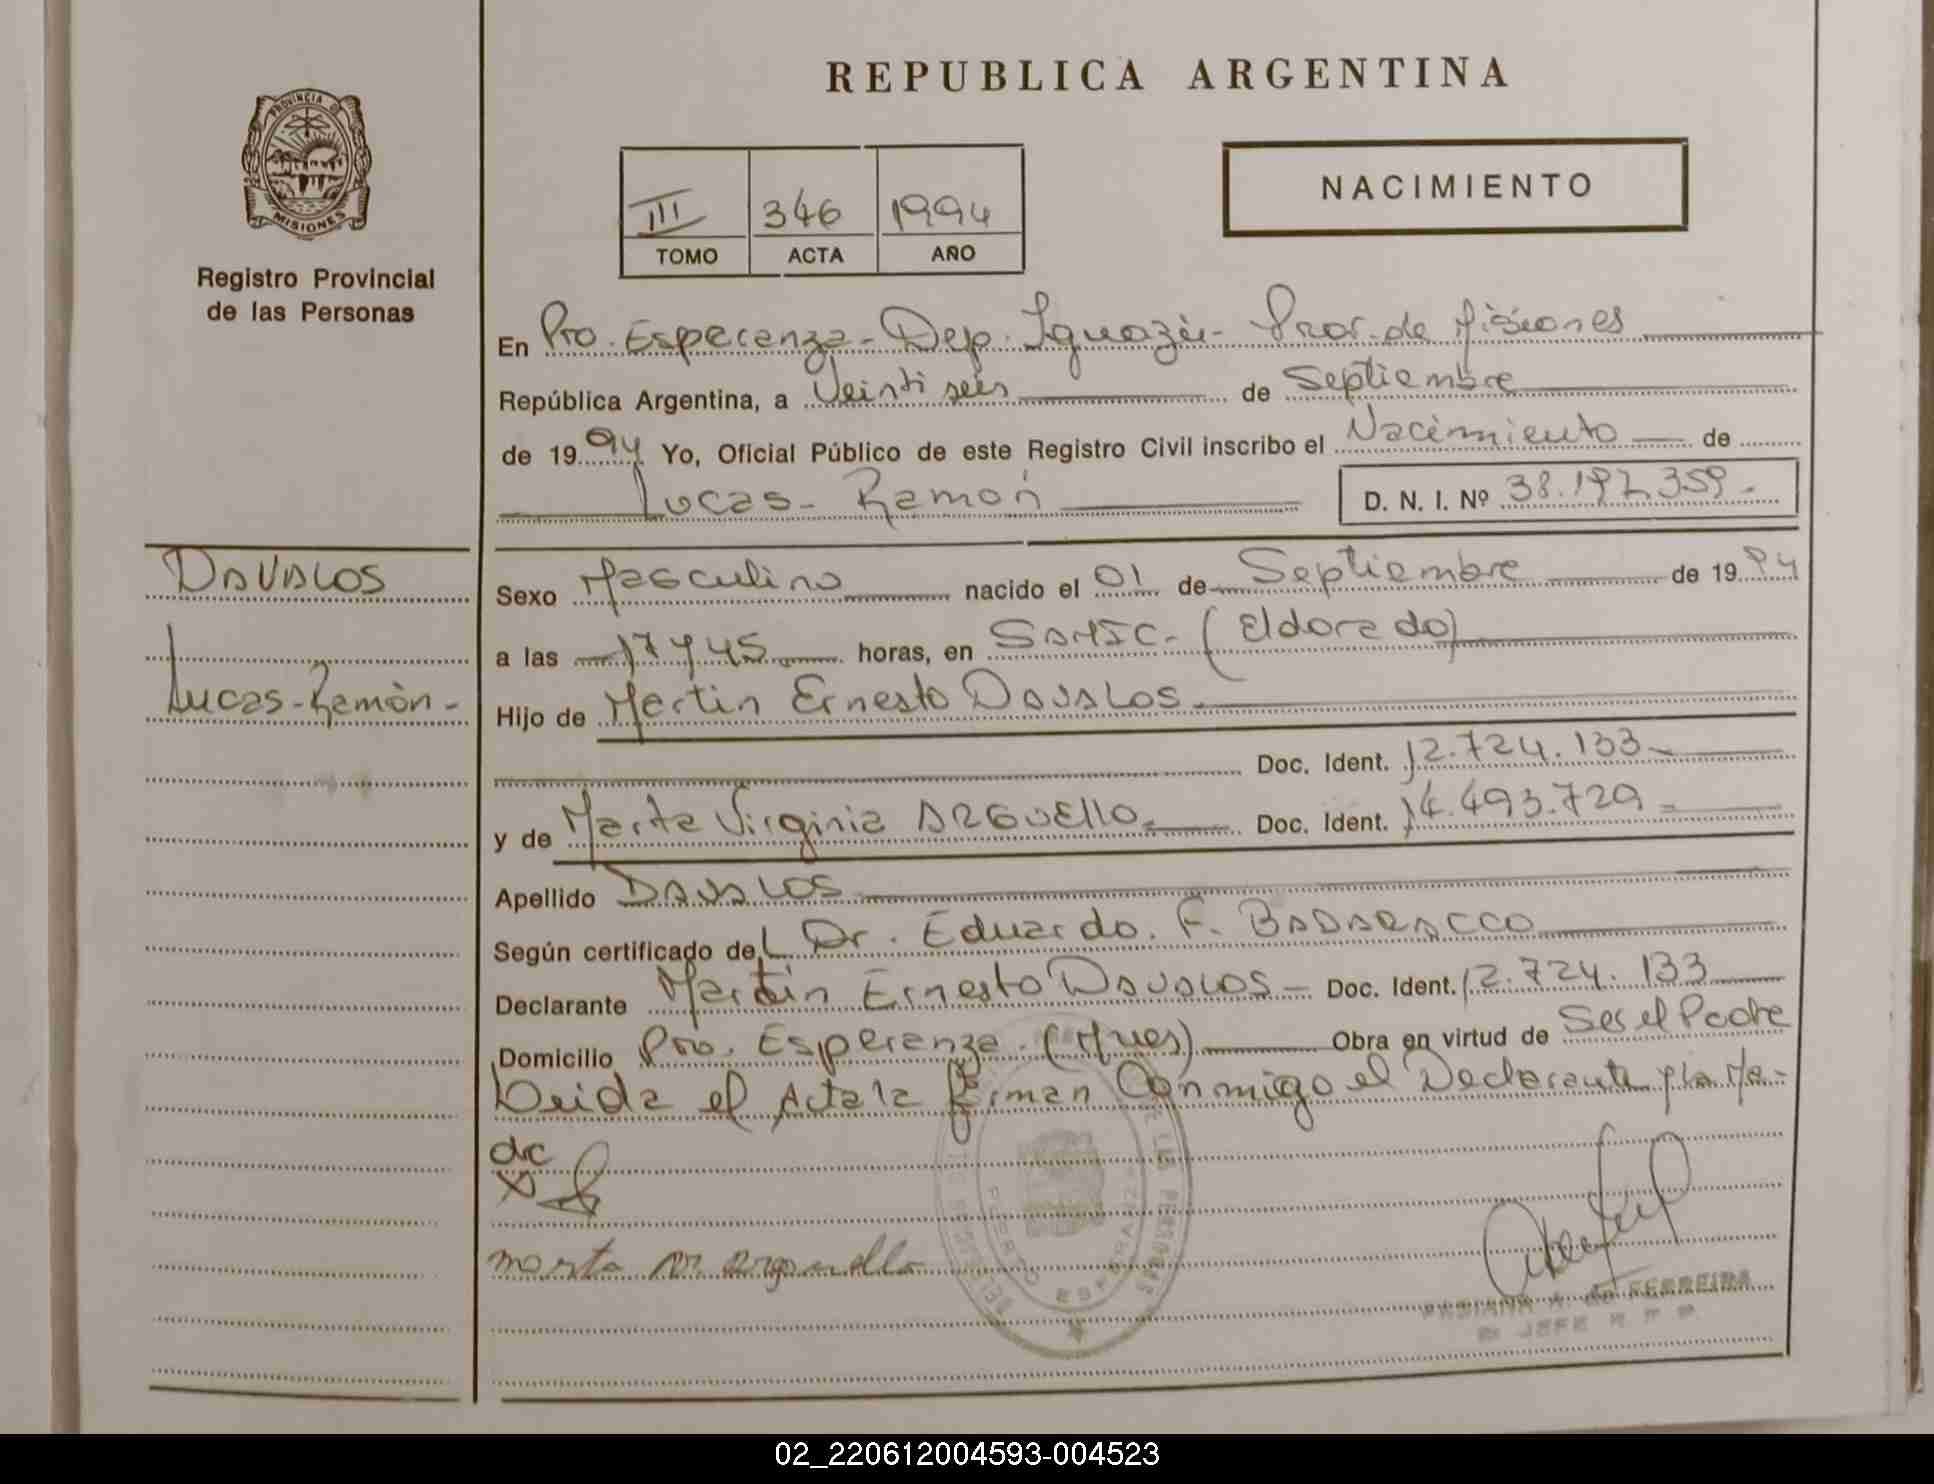 REPUBLICA ARGENTINA
PROVINCIA DE
MISIONES
Registro Provincial
de las Personas
III 346 1994
TOMO ACTA AÑO
NACIMIENTO
En Pto. Esperanza - Dep. Iguazú - Prov. de Misiones
República Argentina, a Veintiseis de Septiembre
de 1994 Yo, Oficial Público de este Registro Civil inscribo el Nacimiento de
Lucas - Ramón D. N. I. Nº 38.197.359 -
DAVALOS
Lucas - Ramón -
Sexo Masculino nacido el 01 de Septiembre de 1994
a las 17 y 45 horas, en SAMIC - (Eldorado)
Hijo de Martin Ernesto DAVALOS
Doc. Ident. 12.724.133 -
y de Marta Virginia ARGUELLO. Doc. Ident. 14.493.729 -
Apellido DAVALOS
Según certificado del Dr. Eduardo. F. BADARACCO
Declarante Martin Ernesto DAVALOS - Doc. Ident. 12.724.133
Domicilio Pto. Esperanza - (Mnes) Obra en virtud de Ser el Padre
Leida el Acta la firman Conmigo el Declarante y la Ma-
dre
marta v. arguello
PUERTO ESPERANZA
FABIANA A. de FERREIRA
JEFE R P P
02_220612004593-004523